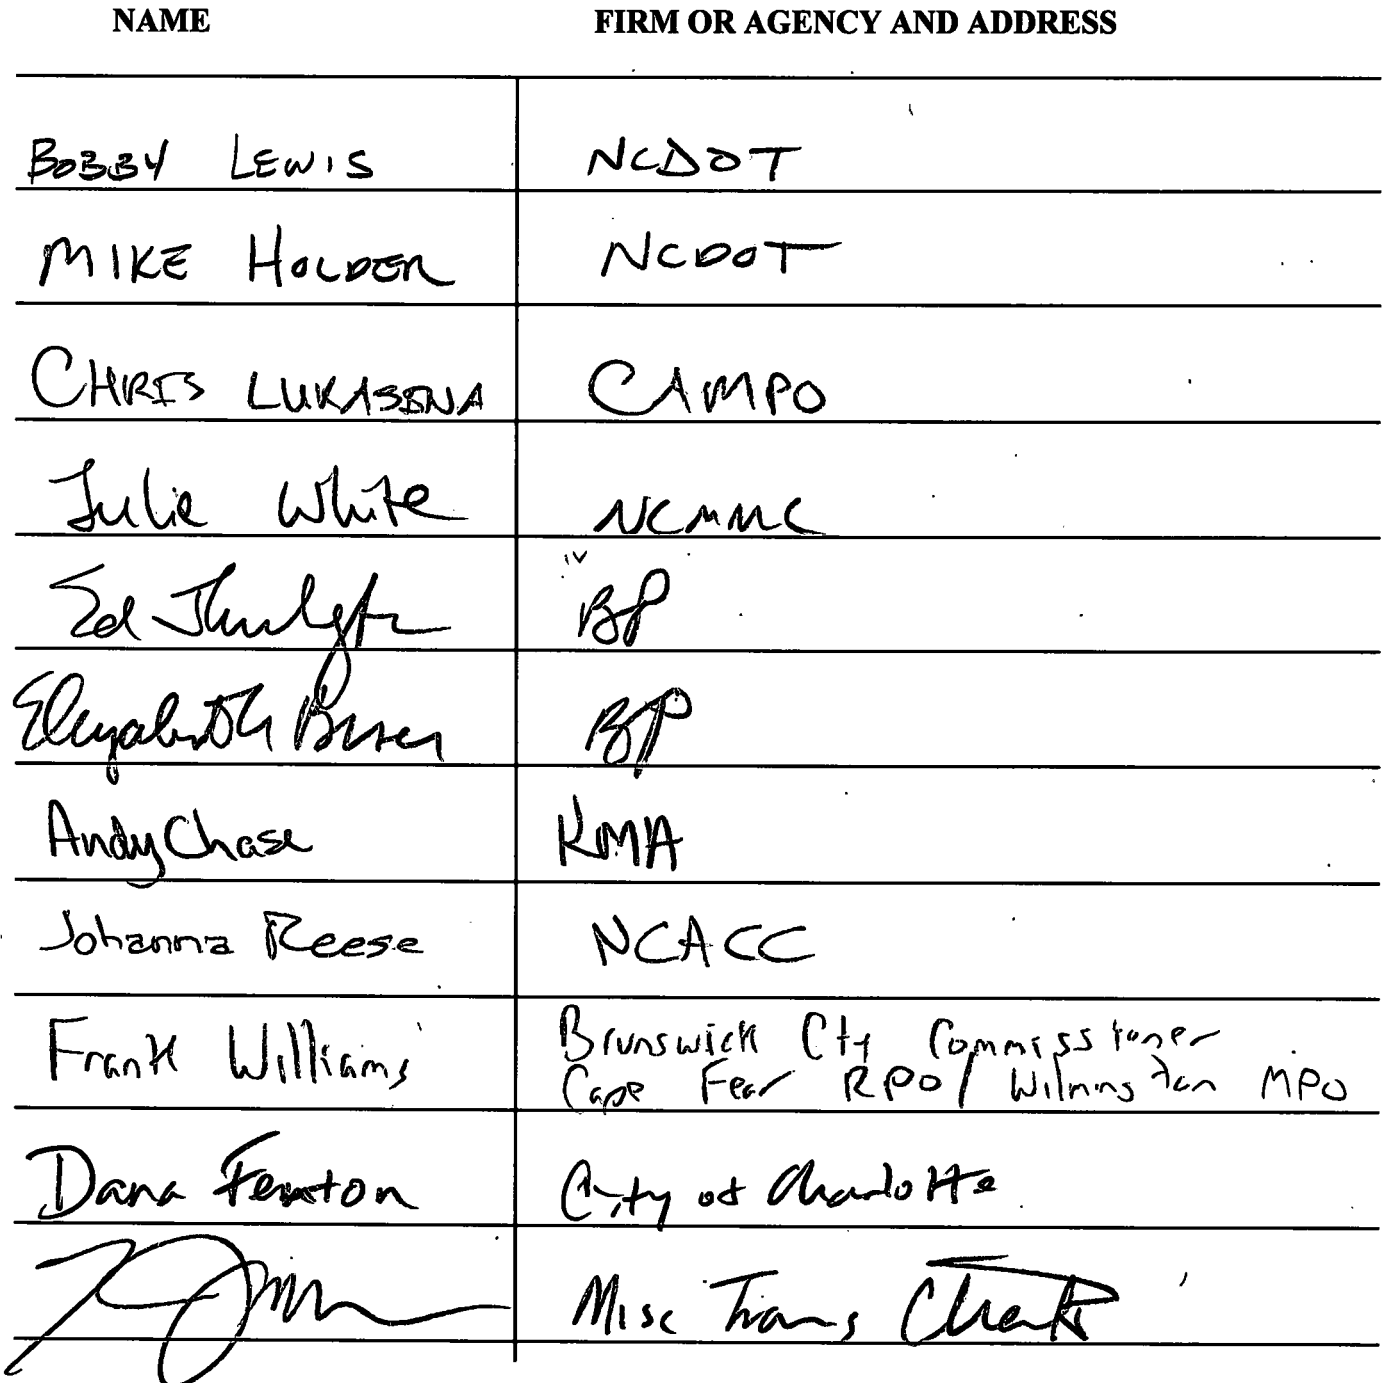 NAME FIRM OR AGENCY AND ADDRESS
BOBBY LEWIS NCDOT
MIKE HOLDER NCDOT
CHRIS LUKASINA CAMPO
Julie White NCMMC
Ed BP
Elizabeth BP
Andy Chase KMA
Johanna Reese NCACC
Frank Williams Brunswick Cty Commissioner
Cape Fear RPO/ Wilmington MPO
Dana Fenton City of Charlotte
Misc Trans